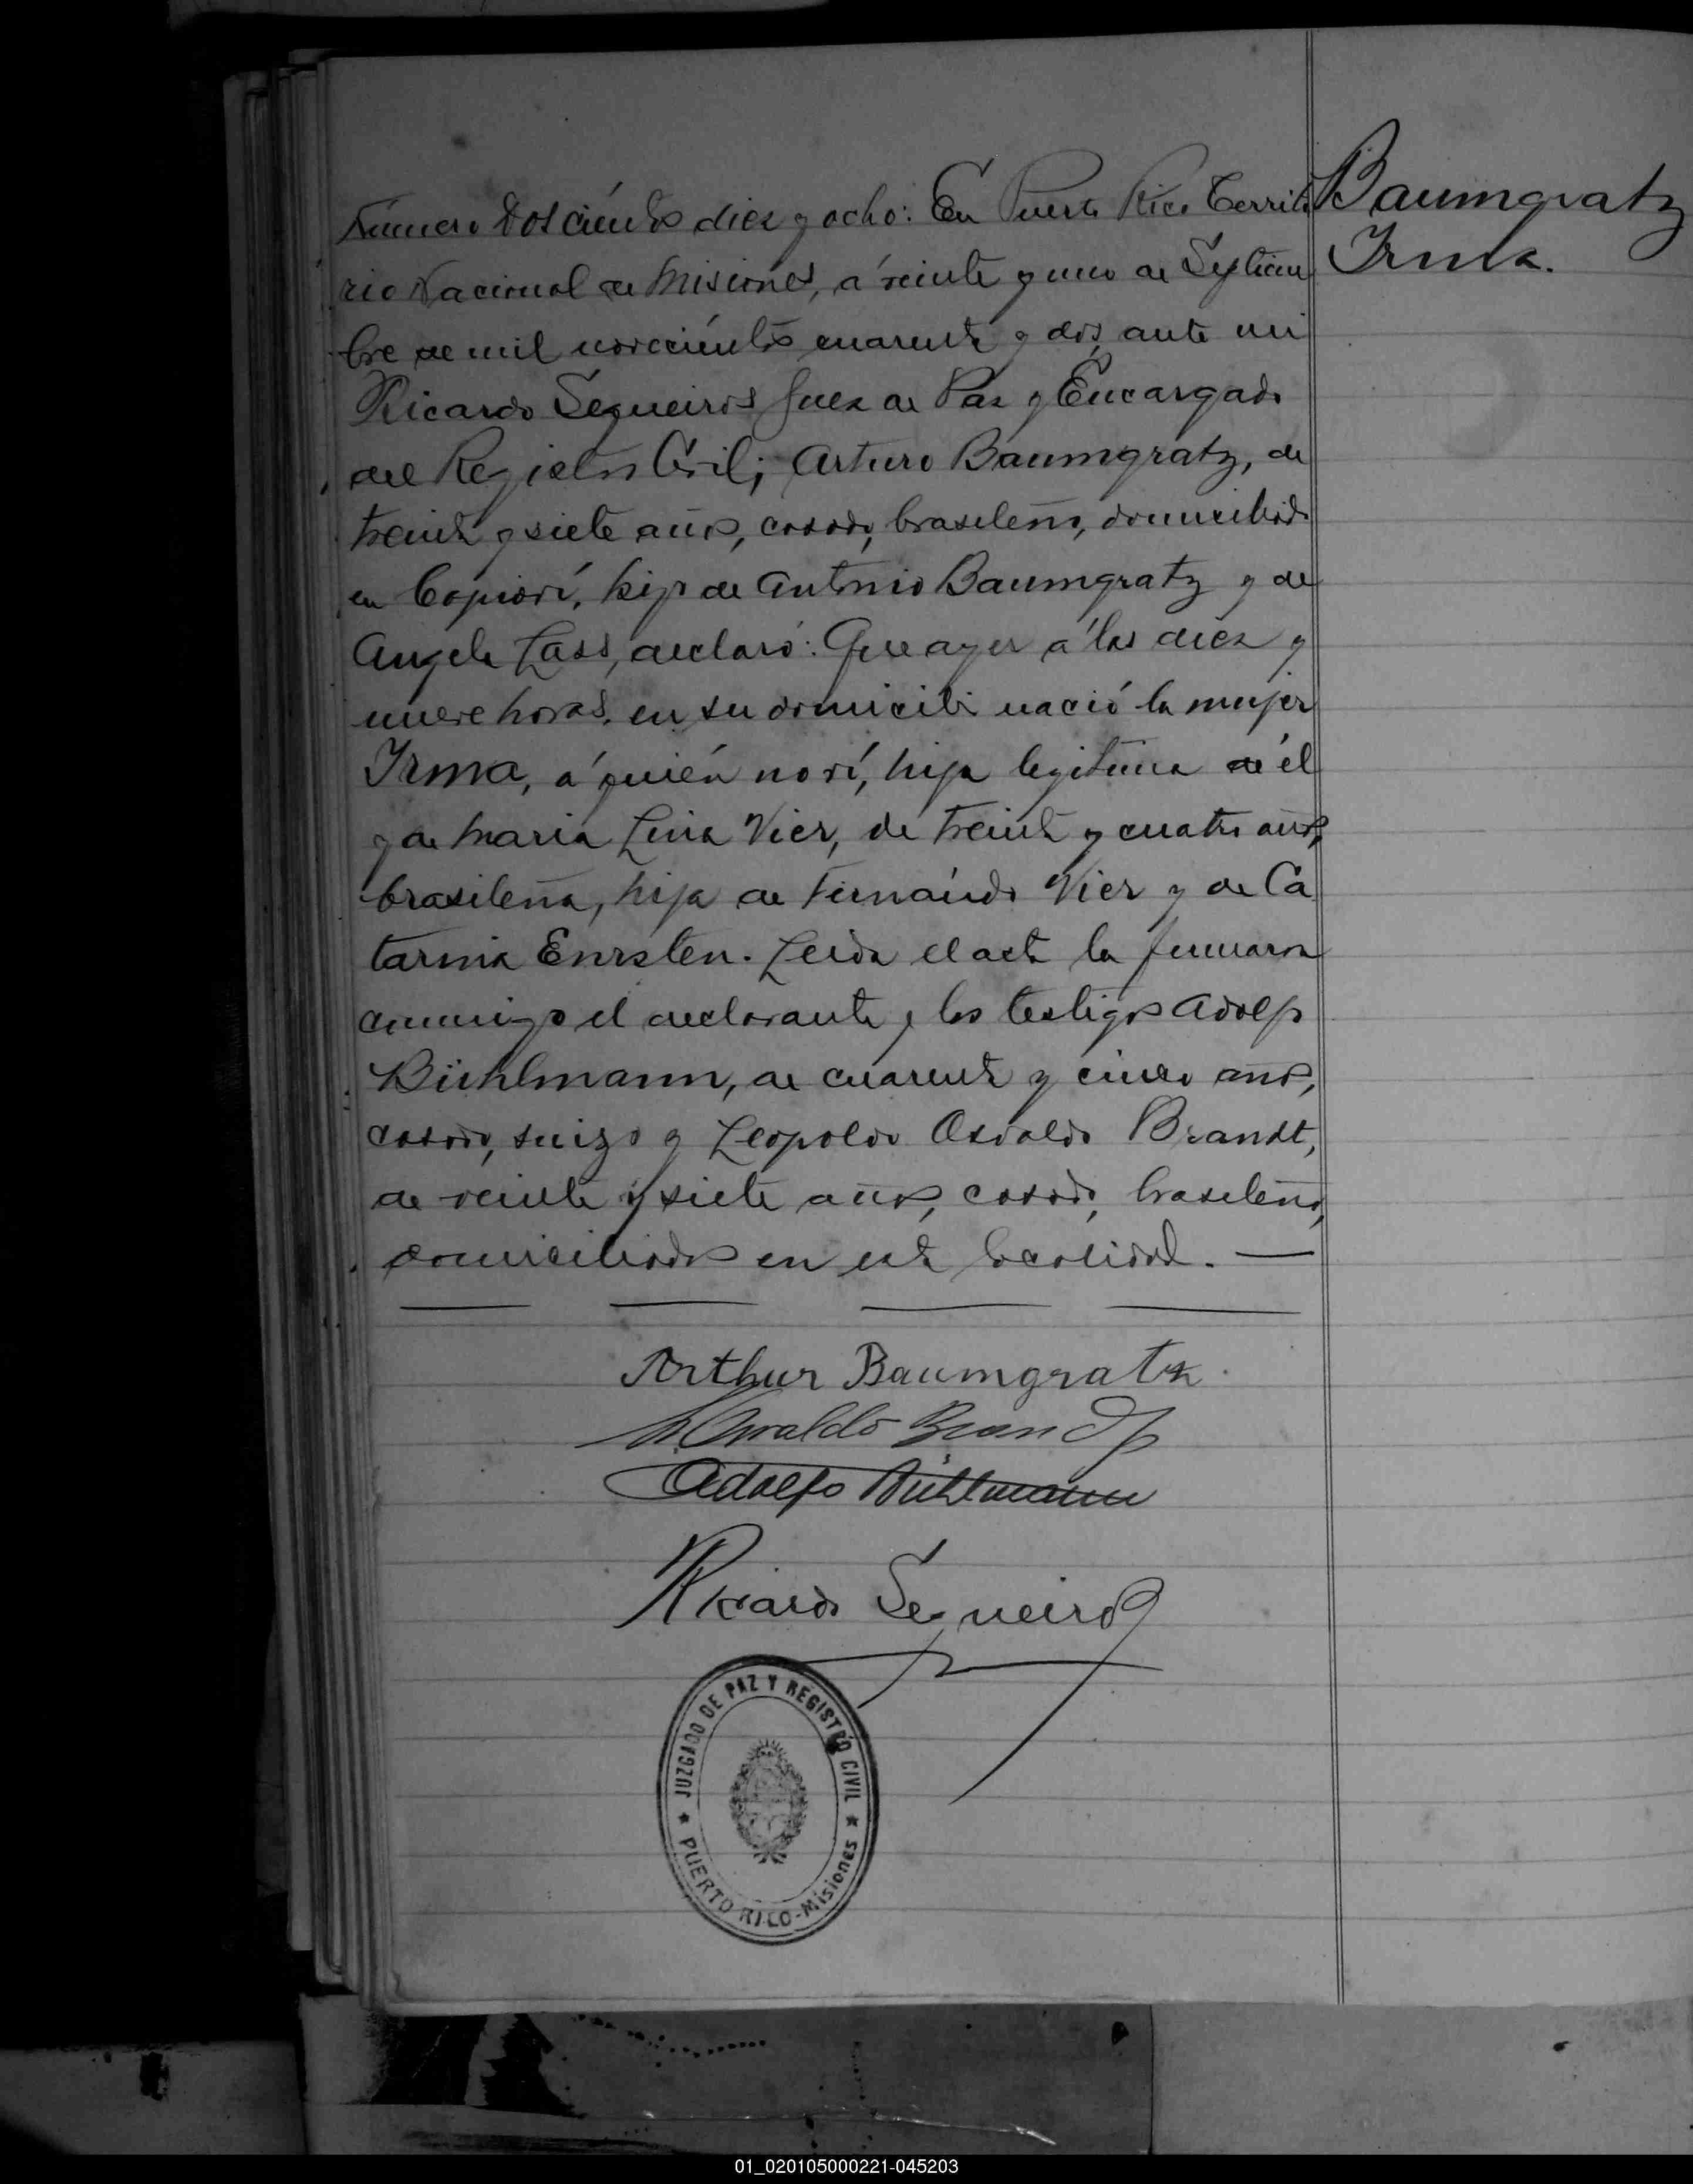 Número Doscientos diez y ocho: En Puerto Rico Territo
rio Nacional de Misiones, á veinte y uno de Septiem
bre de mil novecientos cuarenta y dos, ante mi
Ricardo Sequeiros Juez de Paz y Encargado
del Registro Civil; Arturo Baumgratz, de
treinta y siete años, casado, brasileño, domiciliado
en Capioví, hijo de Antonio Baumgratz y de
Angela Lass, declaró: Que ayer á las diez y
nueve horas, en su domicilio nació la mujer
Irma, á quién no ví, hija legitima de él
y de Maria Lina Vier, de treinta y cuatro años,
brasileña, hija de Fernando Vier y de Ca
tarina Enrsten. Leida el acta la firmaron
conmigo el declarante y los testigos Adolfo
Bühlmann, de cuarenta y cinco años,
casado, suizo y Leopoldo Osvaldo Brandt,
de veinte y siete años, casado, brasileño,
domiciliados en esta localidad. —
Baumgratz
Irma.
Arthur Baumgratz.
Osvaldo Brandt
Adolfo Bühlmann
Ricardo Sequeiros
JUZGADO DE PAZ Y REGISTRO CIVIL
★ PUERTO RICO-Misiones ★
01_020105000221-045203